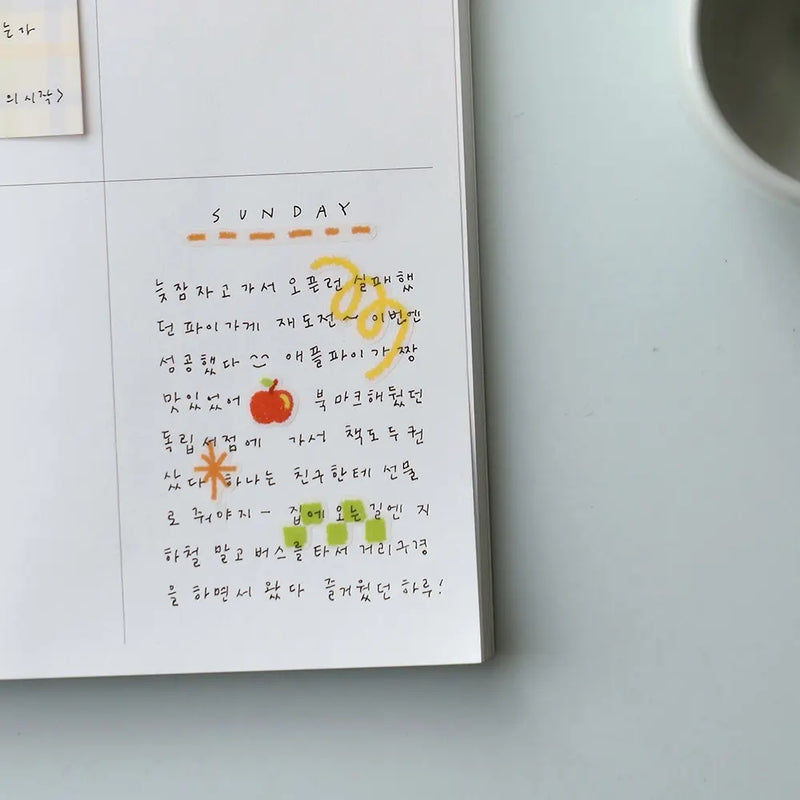 는가
의 시작>
SUNDAY
늦잠자고 가서 오픈런 실패했
던 파이가게 재도전~ 이번엔
성공했다 애플파이가 짱
맛있었어 북마크해뒀던
독립서점에 가서 책도 두 권
샀다 하나는 친구한테 선물
로 줘야지- 집에 오는 길엔 지
하철 말고 버스를 타서 거리구경
을 하면서 왔다 즐거웠던 하루!